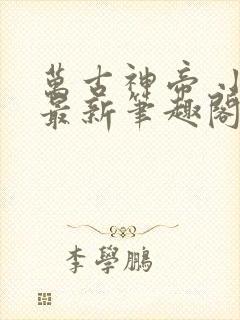 萬古神帝 小
最新筆趣閣
李學鵬